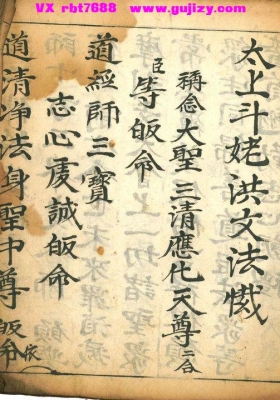 VX rbt7688 www.gujizy.com
太上斗姥洪文法懴
稱念大聖三清應化天尊二合
臣等皈命
道經師三寶
志心虔誠皈命
道清净法身聖中尊皈命依